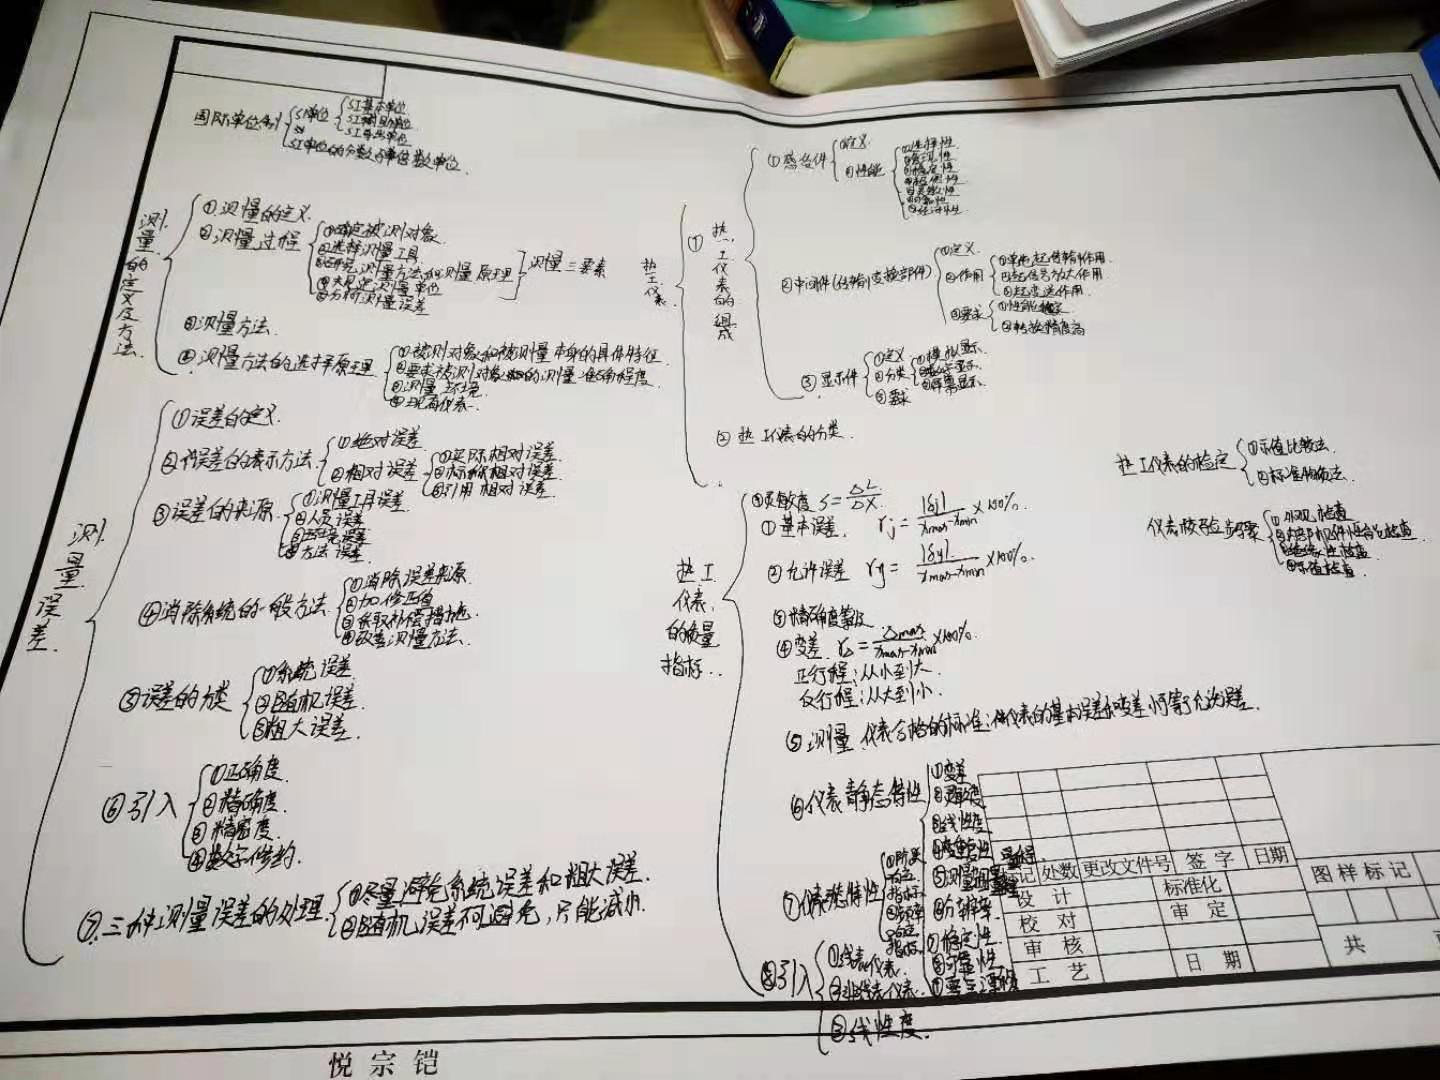 国际单位制
SI单位
SI基本单位
SI辅助单位
SI导出单位
SI单位的分数与倍数单位
测量的定义及方法
①测量的定义
②测量过程
①确定被测对象
②选择测量工具
测量方法和测量原理
测量单位
⑤分析测量误差
测量三要素
③测量方法
④测量方法的选择原理
①被测对象和被测量本身的具体特征
②要求被测对象的测量准确程度
③测量环境
④现有仪表
测量误差
①误差的定义
②误差的表示方法
①绝对误差
②相对误差
①实际相对误差
②标称相对误差
③引用相对误差
③误差的来源
①测量工具误差
②人员误差
③环境误差
④方法误差
④消除系统的一般方法
①消除误差来源
②加修正值
③采取补偿措施
④改善测量方法
⑤误差的分类
①系统误差
②随机误差
③粗大误差
⑥引入
①正确度
②精确度
③精密度
④数字修约
⑦三种测量误差的处理
①尽量避免系统误差和粗大误差
②随机误差不可避免,只能减小
热工仪表
①热工仪表的组成
①感受件
①定义
②性能
①选择性
②复现性
③稳定性
⑦经济性
②中间件(传输变换部件)
①定义
②作用
①单纯起传输作用
②起信号放大作用
③起变送作用
③要求
①性能稳定
②转换精度高
③显示件
①定义
②分类
①模拟显示
②数字显示
③屏幕显示
③要求
②热工仪表的分类
热工仪表的质量指标
灵敏度 S=ΔL/ΔX
①基本误差 γj=|δj|/(xmax-xmin)×100%
②允许误差 γy=|δy|/(xmax-xmin)×100%
③精确度等级
④变差 γΔ=Δmax/(xmax-xmin)×100%
正行程:从小到大
反行程:从大到小
⑤测量仪表合格的标准:仪表的基本误差和变差小于等于允许误差
⑥仪表静态特性
①变差
②灵敏度
③线性度
⑥分辨率
⑦稳定性
⑧可靠性
⑦动态特性
⑧引入
①线性仪表
②非线性仪表
③线性度
热工仪表的检定
①示值比较法
②标准物质法
仪表校验步骤
①外观检查
②内部机件性能检查
③绝缘性检查
④示值检查
标记 处数 更改文件号 签字 日期
设计 标准化
校对 审定
审核
工艺 日期
图样标记
共
悦宗铠